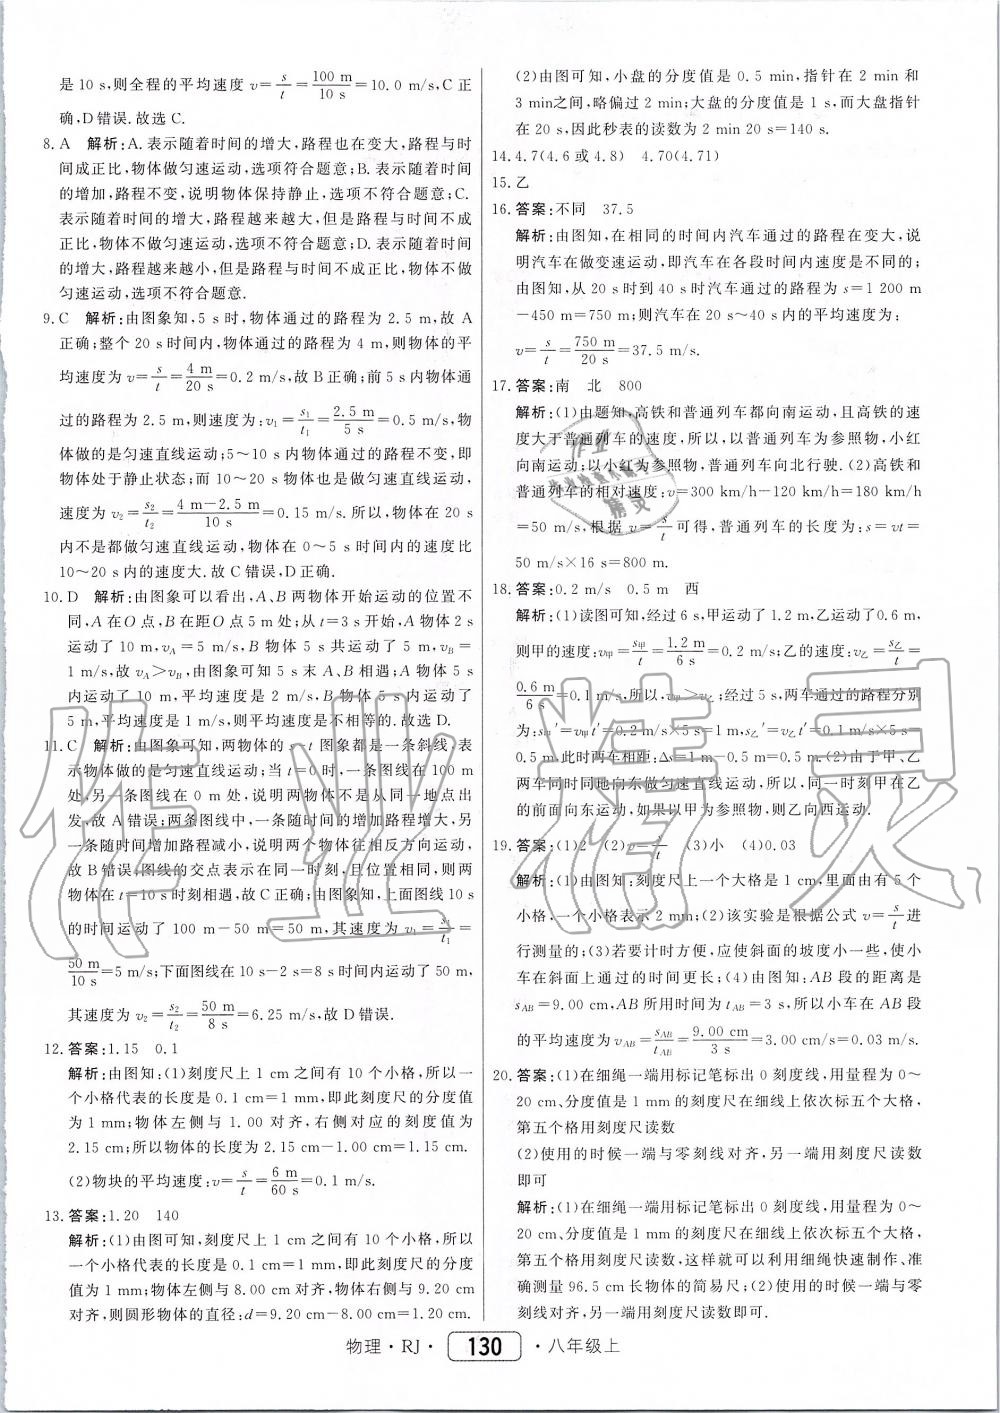 是 10 s,则全程的平均速度 v=s/t=100 m/10 s=10.0 m/s,C 正
确,D 错误.故选 C.
8. A 解析:A.表示随着时间的增大,路程也在变大,路程与时
间成正比,物体做匀速运动,选项符合题意;B.表示随着时间
的增加,路程不变,说明物体保持静止,选项不符合题意;C.
表示随着时间的增大,路程越来越大,但是路程与时间不成
正比,物体不做匀速运动,选项不符合题意;D.表示随着时间
的增大,路程越来越小,但是路程与时间不成正比,物体不做
匀速运动,选项不符合题意.
9. C 解析:由图象知,5 s 时,物体通过的路程为 2.5 m,故 A
正确;整个 20 s 时间内,物体通过的路程为 4 m,则物体的平
均速度为 v=s/t=4 m/20 s=0.2 m/s,故 B 正确;前 5 s 内物体通
过的路程为 2.5 m,则速度为:v₁=s₁/t₁=2.5 m/5 s=0.5 m/s,物
体做的是匀速直线运动;5～10 s 内物体的路程不变,即物
体处于静止状态;而 10～20 s 物体也是做匀速直线运动,
速度为 v₂=s₂/t₂=4 m-2.5 m/10 s=0.15 m/s.所以,物体在 20 s
内不是都做匀速直线运动,在 0～5 s 时间内的速度比
10～20 s 内的速度大.故 C 错误,D 正确.
10. D 解析:由图象可以看出,A、B 两物体开始运动的位置不
同,A 在 O 点,B 在距 O 点 5 m 处;从 t=3 s 开始,A 物体 2 s
运动了 10 m,v_A=5 m/s,B 物体 5 s 共运动了 5 m,v_B=
1 m/s,故 v_A>v_B;由图象可知 5 s 末 A、B 相遇;A 物体 5 s
内运动了 10 m,平均速度是 2 m/s,B 物体 5 s 内运动了
5 m,平均速度是 1 m/s,则平均速度是不相等的.故选 D.
11. C 解析:由图象可知,两物体的 s-t 图象都是一条斜线,表
示物体做的是匀速直线运动;当 t=0 时,一条图线在 100 m
处,另一条图线在 0 m 处,说明两物体不是在同一地点出
发,故 A 错误;两条图线中,一条随时间的增加路程增大,另
一条随时间增加路程减小,说明两个物体往相反方向运动,
故 B 错误;图线的交点表示在同一时刻,且位置相同,即两
物体在 t=10 s 时刻相遇,故 C 正确;由图象知,上面图线 10 s
的时间运动了 100 m-50 m=50 m,其速度为 v₁=s₁/t₁=
50 m/10 s=5 m/s;下面图线在 10 s-2 s=8 s 时间内运动了 50 m,
其速度为 v₂=s₂/t₂=50 m/8 s=6.25 m/s,故 D 错误.
12. 答案:1.15 0.1
解析:由图知:(1)刻度尺上 1 cm 之间有 10 个小格,所以一
个小格代表的长度是 0.1 cm=1 mm,即此刻度尺的分度值
为 1 mm;物体左侧与 1.00 对齐,右侧对应的刻度为
2.15 cm;所以物体的长度为 2.15 cm-1.00 cm=1.15 cm.
(2)物块的平均速度:v=s/t=6 m/60 s=0.1 m/s.
13. 答案:1.20 140
解析:(1)由图可知,刻度尺上 1 cm 之间有 10 个小格,所以
一个小格代表的长度是 0.1 cm=1 mm,即此刻度尺的分度
值为 1 mm;物体左侧与 8.00 cm 对齐,物体右侧与 9.20 cm
对齐,则圆形物体的直径:d=9.20 cm-8.00 cm=1.20 cm.
(2)由图可知,小盘的分度值是 0.5 min,指针在 2 min 和
3 min之间,略偏过 2 min;大盘的分度值是 1 s,而大盘指针
在 20 s,因此秒表的读数为 2 min 20 s=140 s.
14. 4.7(4.6 或 4.8) 4.70(4.71)
15. 乙
16. 答案:不同 37.5
解析:由图知,在相同的时间内汽车通过的路程在变大,说
明汽车在做变速运动,即汽车在各段时间内速度是不同的;
由图知,从 20 s 时到 40 s 时汽车通过的路程为 s=1 200 m
-450 m=750 m;则汽车在 20 s～40 s 内的平均速度为:
v=s/t=750 m/20 s=37.5 m/s.
17. 答案:南 北 800
解析:(1)由题知,高铁和普通列车都向南运动,且高铁的速
度大于普通列车的速度,所以,以普通列车为参照物,小红
向南运动;以小红为参照物,普通列车向北行驶.(2)高铁和
普通列车的相对速度:v=300 km/h-120 km/h=180 km/h
=50 m/s,根据 v=s/t 可得,普通列车的长度为:s=vt=
50 m/s×16 s=800 m.
18. 答案:0.2 m/s 0.5 m 西
解析:(1)读图可知,经过 6 s,甲运动了 1.2 m,乙运动了 0.6 m,
则甲的速度:v甲=s甲/t=1.2 m/6 s=0.2 m/s;乙的速度:v乙=s乙/t=
0.6 m/6 s=0.1 m/s,所以,v甲>v乙;经过 5 s,两车通过的路程分别
为:s甲′=v甲t′=0.2 m/s×5 s=1 m,s乙′=v乙t′=0.1 m/s×5 s
=0.5 m,此时两车相距:Δs=1 m-0.5 m=0.5 m.(2)由于甲、乙
两车同时同地向东做匀速直线运动,所以,同一时刻甲在乙
的前面向东运动,如果以甲为参照物,则乙向西运动.
19. 答案:(1)2 (2)v=s/t (3)小 (4)0.03
解析:(1)由图知:刻度尺上一个大格是 1 cm,里面由有 5 个
小格,一个小格表示 2 mm;(2)该实验是根据公式 v=s/t进
行测量的;(3)若要计时方便,应使斜面的坡度小一些,使小
车在斜面上通过的时间更长;(4)由图知:AB 段的距离是
s_AB=9.00 cm,AB 所用时间为 t_AB=3 s,所以小车在 AB 段
的平均速度为 v_AB=s_AB/t_AB=9.00 cm/3 s=3.00 cm/s=0.03 m/s.
20. 答案:(1)在细绳一端用标记笔标出 0 刻度线,用量程为 0～
20 cm、分度值是 1 mm 的刻度尺在细线上依次标五个大格,
第五个格用刻度尺读数
(2)使用的时候一端与零刻线对齐,另一端用刻度尺读数
即可
解析:(1)在细绳一端用标记笔标出 0 刻度线,用量程为 0～
20 cm、分度值是 1 mm 的刻度尺在细线上依次标五个大格,
第五个格用刻度尺读数,这样就可以利用细绳快速制作、准
确测量 96.5 cm 长物体的简易尺;(2)使用的时候一端与零
刻线对齐,另一端用刻度尺读数即可.
物理·RJ· 130 ·八年级上
作业精灵